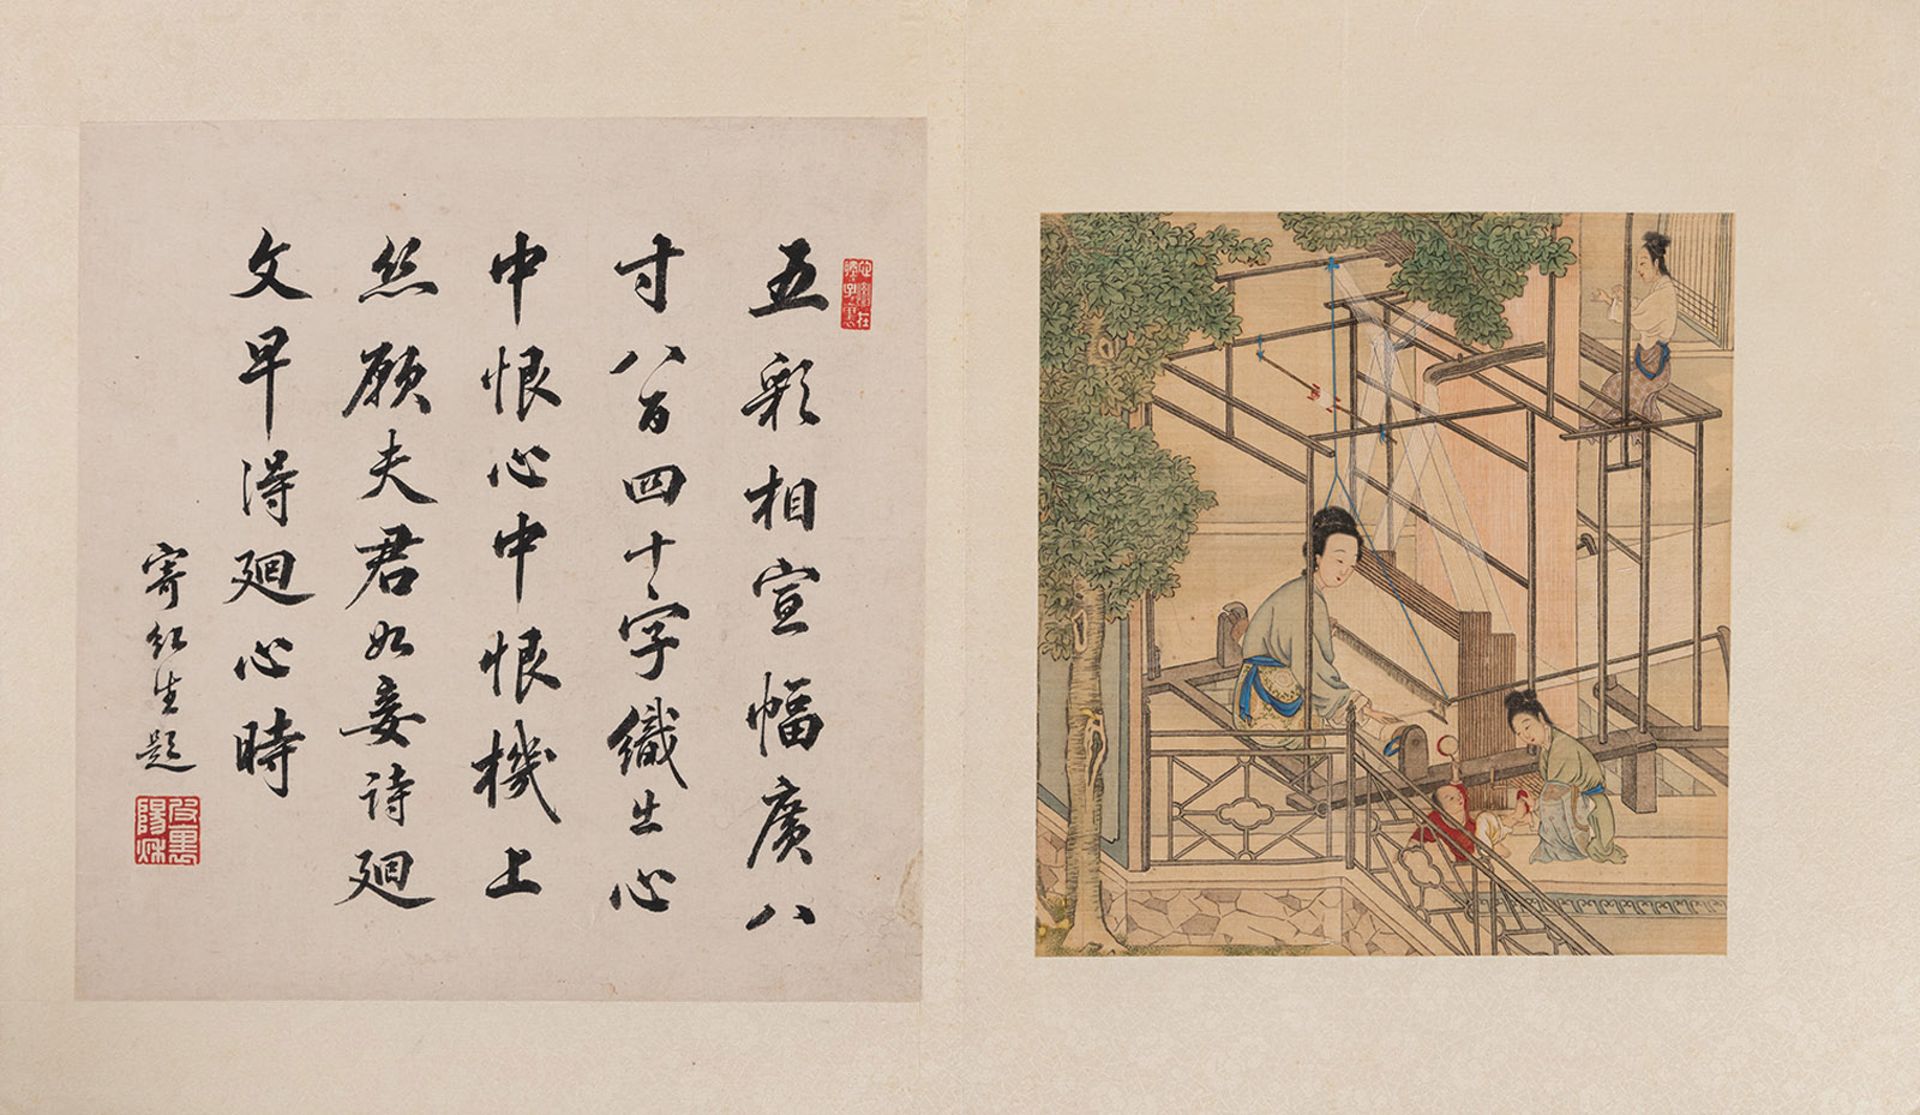 五彩相宣幅廣八
寸八百四十字織出心
中恨心中中恨機上
絲願夫君如妾詩廻
文早得廻心時
寄紅生題